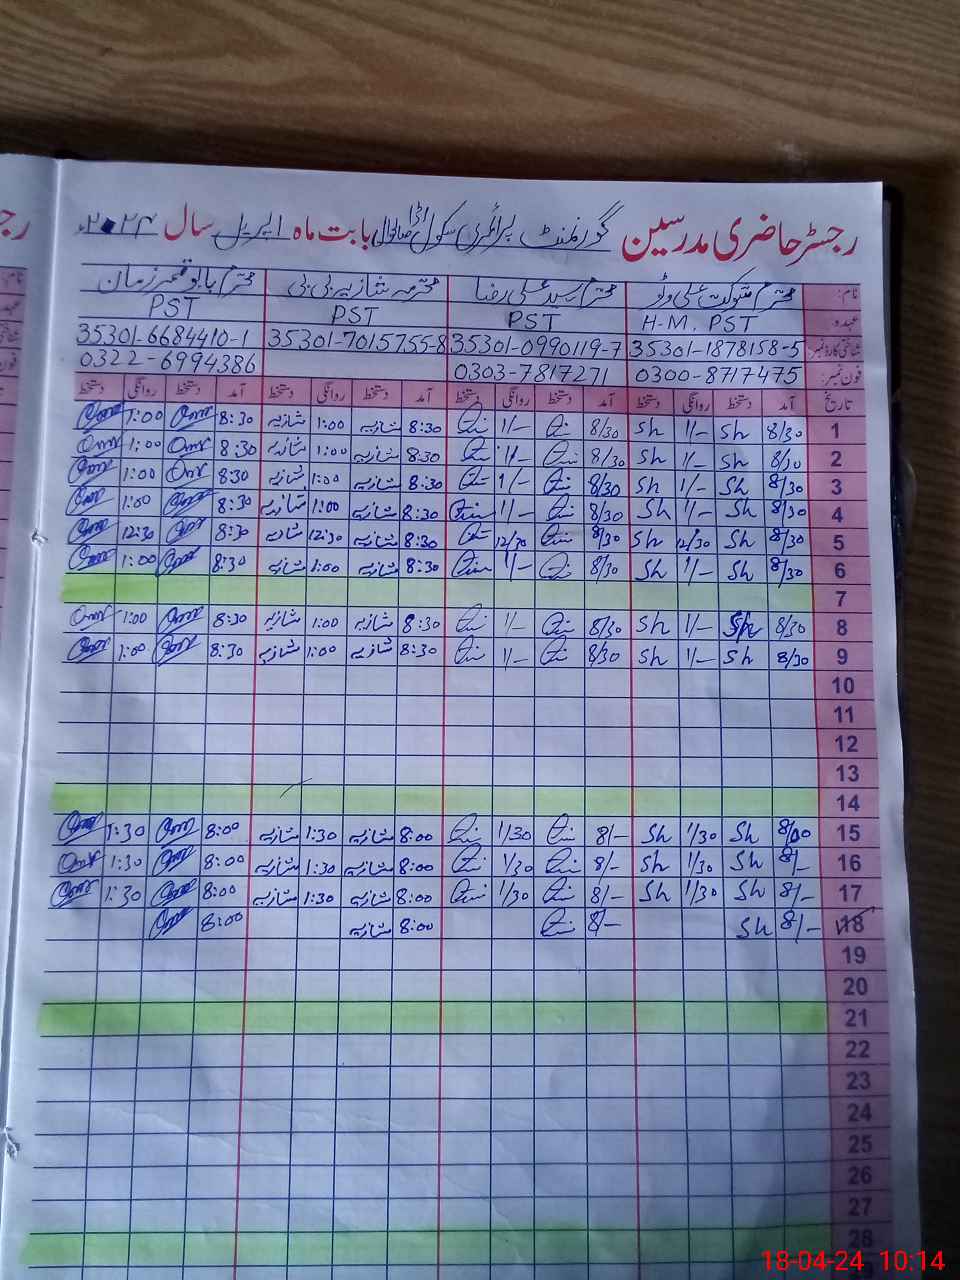 رجسٹر حاضری مدرسین گورنمنٹ پرائمری سکول اڈا بابت ماہ اپریل سال ۲۰۲۴ء
نام: محترم شوکت علی وٹو محترم سید علی رضا محترمہ شازیہ بی بی محترم بابو قمر زمان
عہدہ H-M, PST PST PST PST
شناختی کارڈ نمبر 35301-1878158-5 35301-0990119-7 35301-7015755-8 35301-6684410-1
فون نمبر: 0300-8717475 0303-7817271 0322-6994386
تاریخ آمد دستخط روانگی دستخط آمد دستخط روانگی دستخط آمد دستخط روانگی دستخط آمد دستخط روانگی دستخط
1 8/30 Sh 1/- Sh 8/30 1/- 8:30 شازیہ 1:00 شازیہ 8:30 1:00
2 8/30 Sh 1/- Sh 8/30 1/- 8:30 شازیہ 1:00 شازیہ 8:30 1:00
3 8/30 Sh 1/- Sh 8/30 1/- 8:30 شازیہ 1:00 شازیہ 8:30 1:00
4 8/30 Sh 1/- Sh 8/30 1/- 8:30 شازیہ 1:00 شازیہ 8:30 1:00
5 8/30 Sh 12/30 Sh 8/30 12/30 8:30 شازیہ 12:30 شازیہ 8:30 12:30
6 8/30 Sh 1/- Sh 8/30 1/- 8:30 شازیہ 1:00 شازیہ 8:30 1:00
7
8 8/30 Sh 1/- Sh 8/30 1/- 8:30 شازیہ 1:00 شازیہ 8:30 1:00
9 8/30 Sh 1/- Sh 8/30 1/- 8:30 شازیہ 1:00 شازیہ 8:30 1:00
10
11
12
13
14
15 8/00 Sh 1/30 Sh 8/- 1/30 8:00 شازیہ 1:30 شازیہ 8:00 1:30
16 8/- Sh 1/30 Sh 8/- 1/30 8:00 شازیہ 1:30 شازیہ 8:00 1:30
17 8/- Sh 1/30 Sh 8/- 1/30 8:00 شازیہ 1:30 شازیہ 8:00 1:30
18 8/- Sh 8/- 8:00 شازیہ 8:00
19
20
21
22
23
24
25
26
27
28
18-04-24 10:14